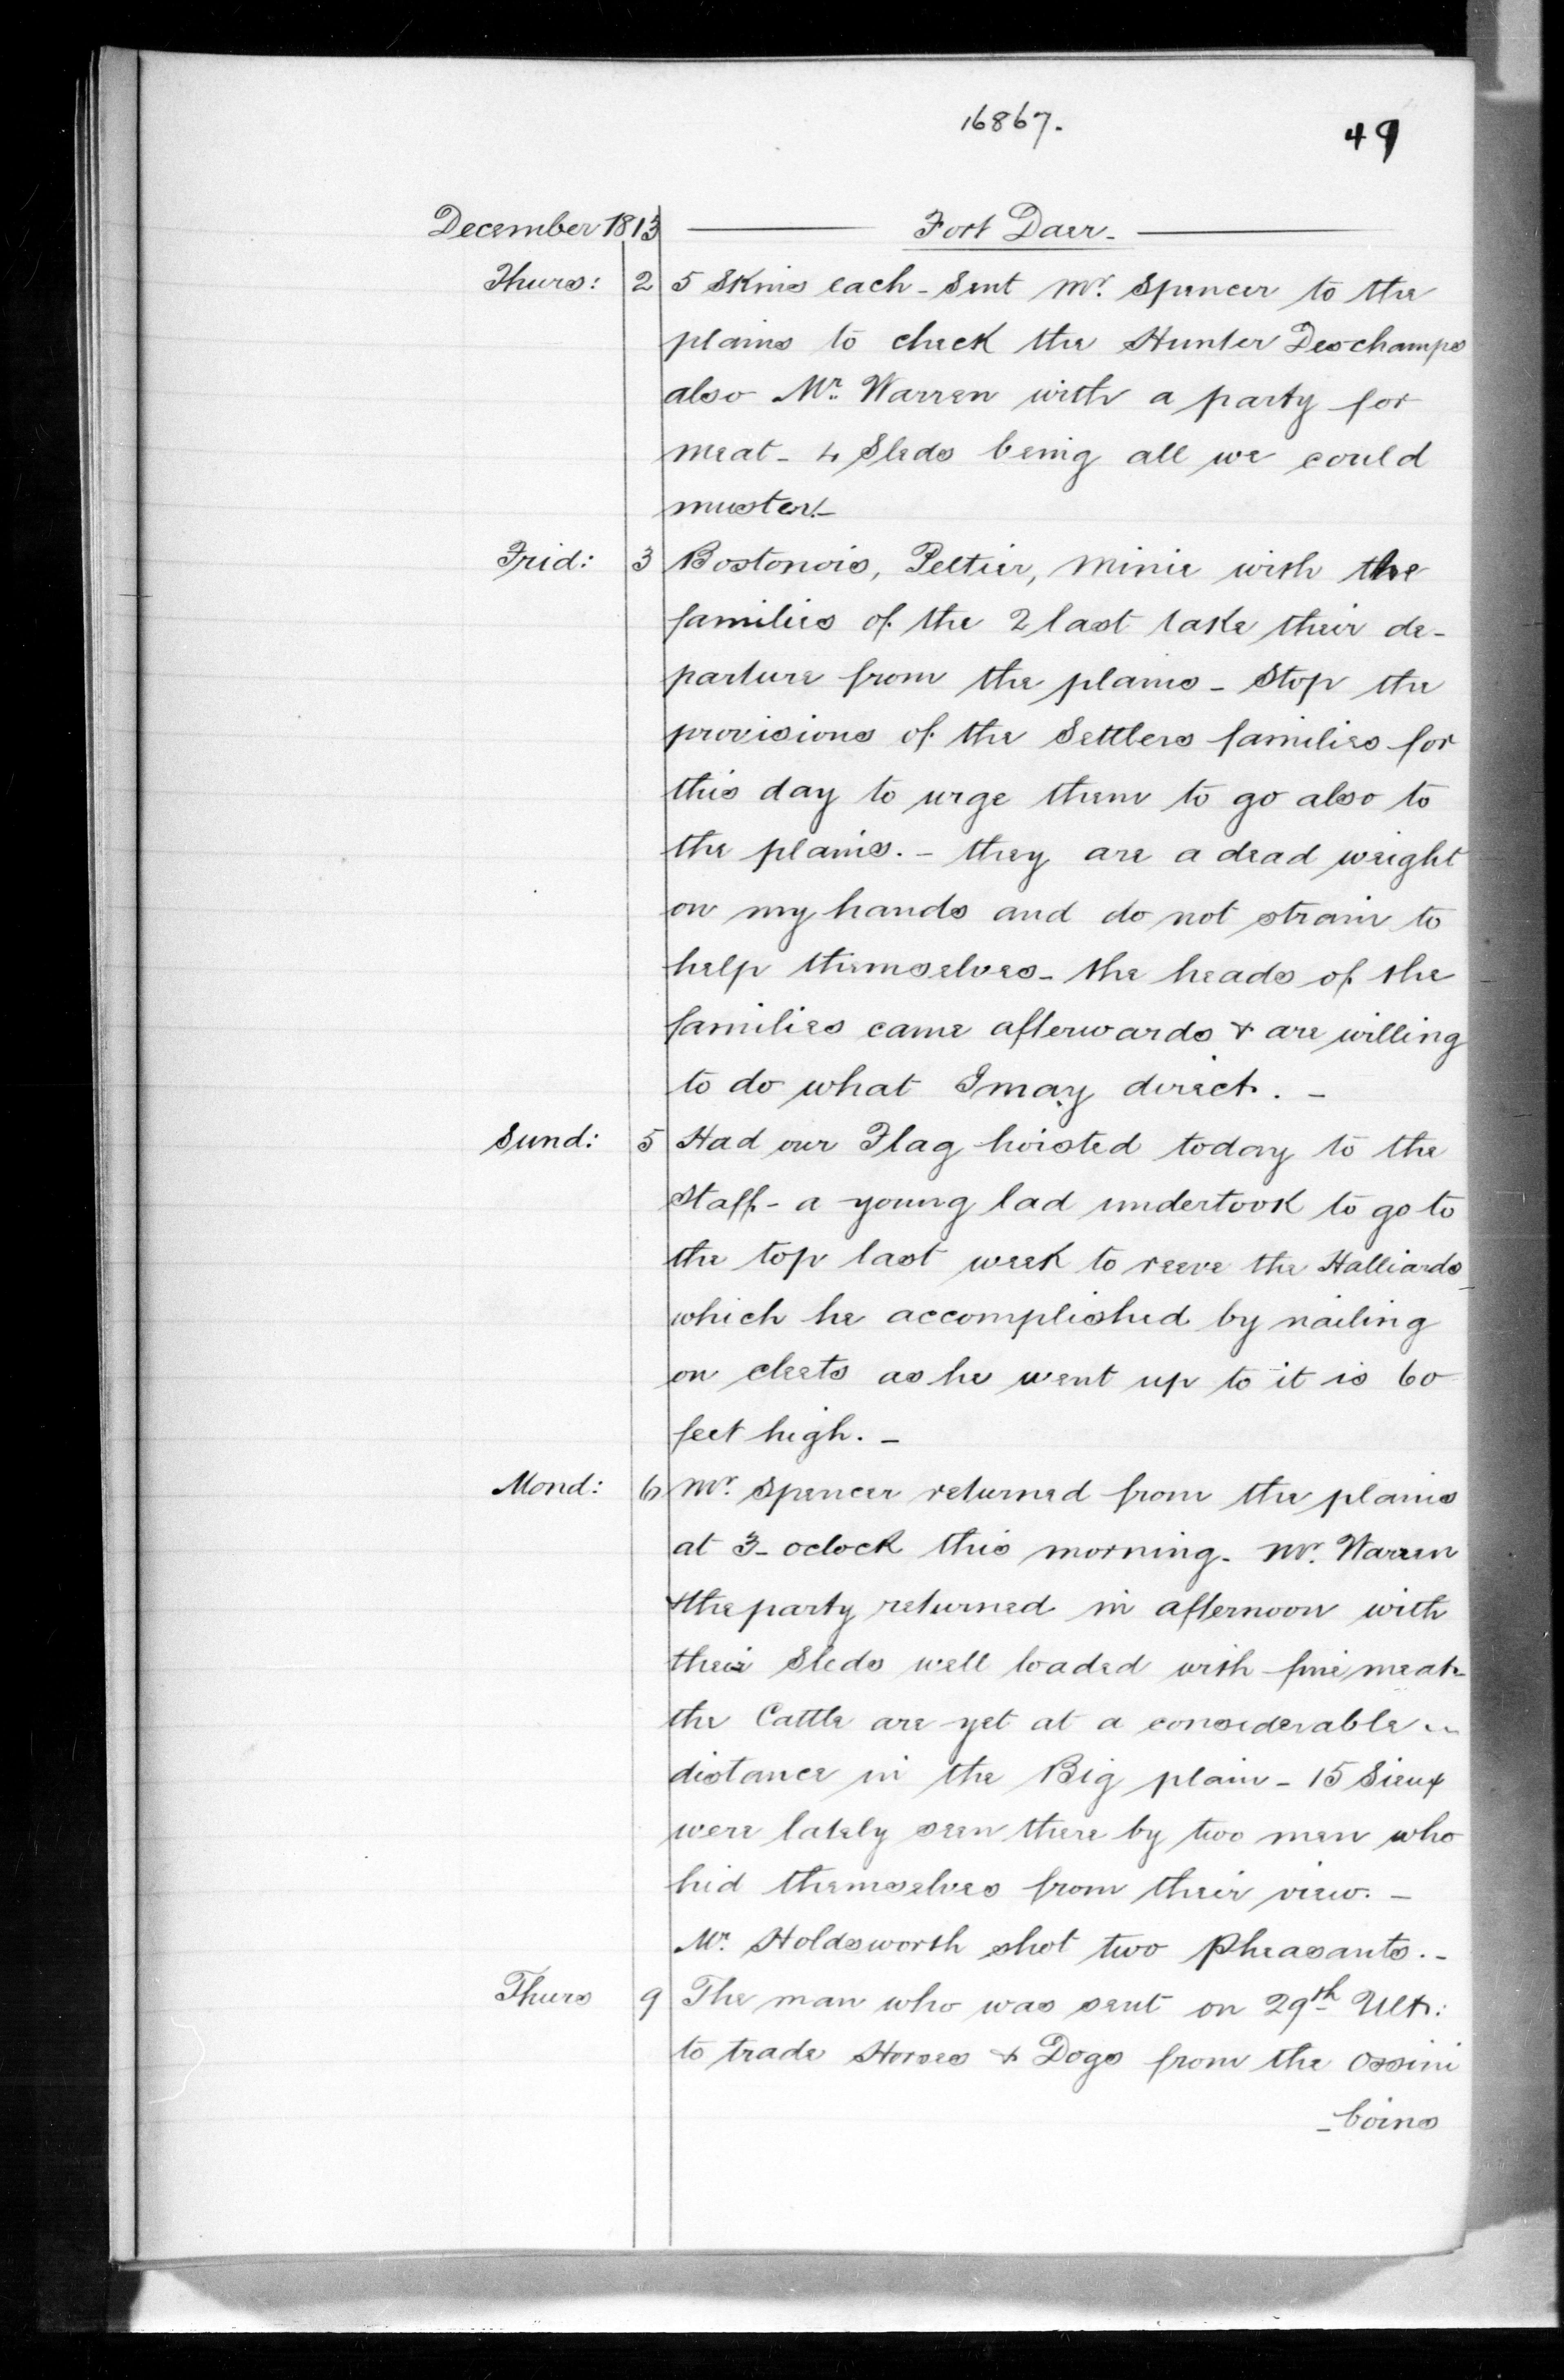 16867.
49
December 1813 Fort Daer.
Thurs: 2 5 Skins each - Sent Mr. Spencer to the
plains to check the Hunter Deschamps
also Mr. Warren with a party for
meat - 4 Sleds being all we could
muster.-
Frid: 3 Bostonois, Peltier, Minie with the
families of the 2 last take their de-
parture from the plains - Stop the
provisions of the Settlers families for
this day to urge them to go also to
the plains. - they are a dead weight
on my hands and do not strain to
help themselves - the heads of the
families came afterwards & are willing
to do what I may direct. -
Sund: 5 Had our Flag hoisted today to the
Staff - a young lad undertook to go to
the top last week to reeve the Halliards
which he accomplished by nailing
on cleets as he went up to it is 60
feet high. -
Mond: 6 Mr. Spencer returned from the plains
at 3 - oclock this morning. Mr. Warren
& the party returned in afternoon with
their Sleds well loaded with fine meat -
the Cattle are yet at a considerable
distance in the Big plain - 15 Sieux
were lately seen there by two men who
hid themselves from their view. -
Mr. Holdsworth shot two Pheasants. -
Thurs 9 The man who was sent on 29th Ult:
to trade Horses & Dogs from the Ossini
-boins